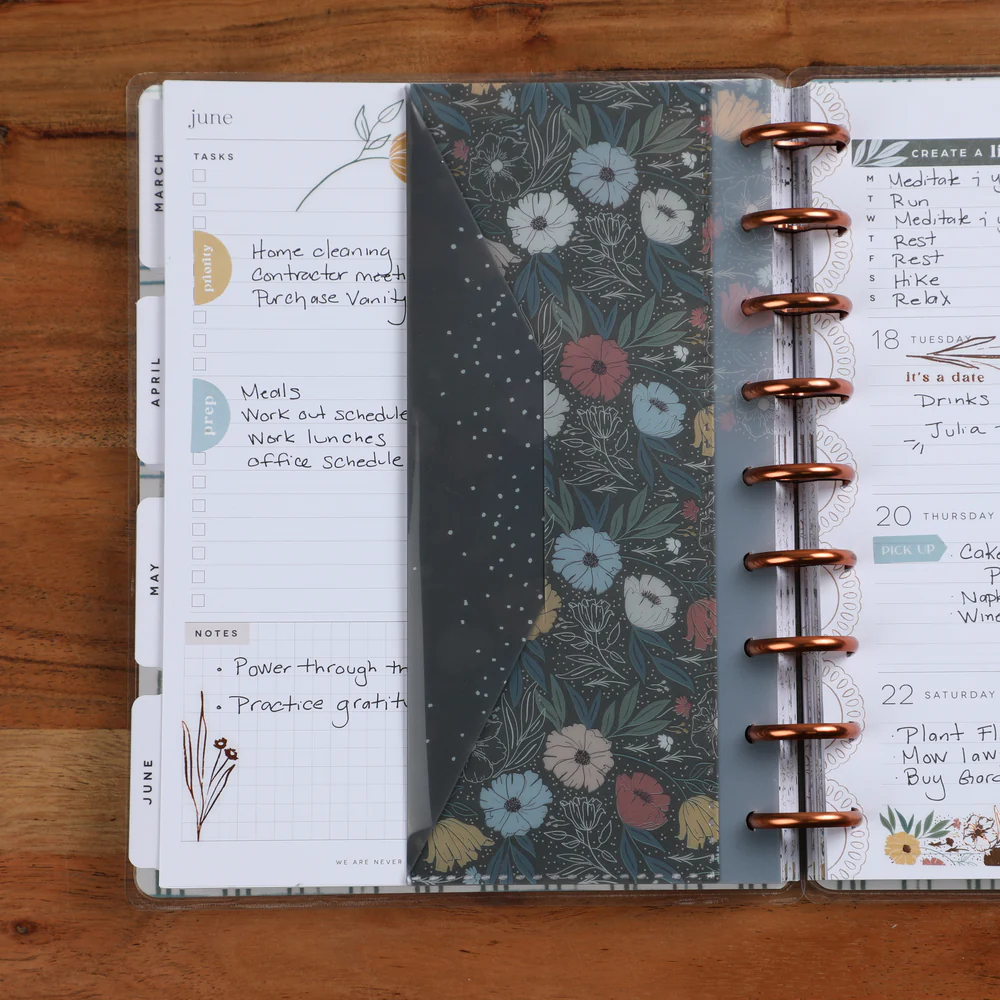 june
TASKS
MARCH
priority
Home cleaning
Contractor meet
Purchase Vanity
APRIL
prep
Meals
Work out schedule
Work lunches
office schedule
MAY
NOTES
Power through
Practice gratit
JUNE
WE ARE NEVER
CREATE A
M Meditate
T Run
W Meditate
T Rest
F Rest
S Hike
S Relax
18 TUESDAY
it's a date
Drinks
Julia
20 THURSDAY
PICK UP
Cake
Wine
22 SATURDAY
Plant
Mow
Buy